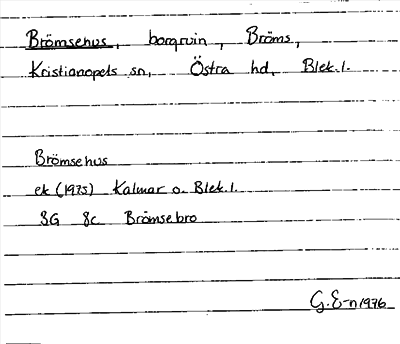 Brömsehus, borgruin, Bröms,
Kristianopels sn, Östra hd, Blek. l.
Brömsehus
ek (1975) Kalmar o. Blek. l.
3G 8c Brömsebro
G. E-n 1976